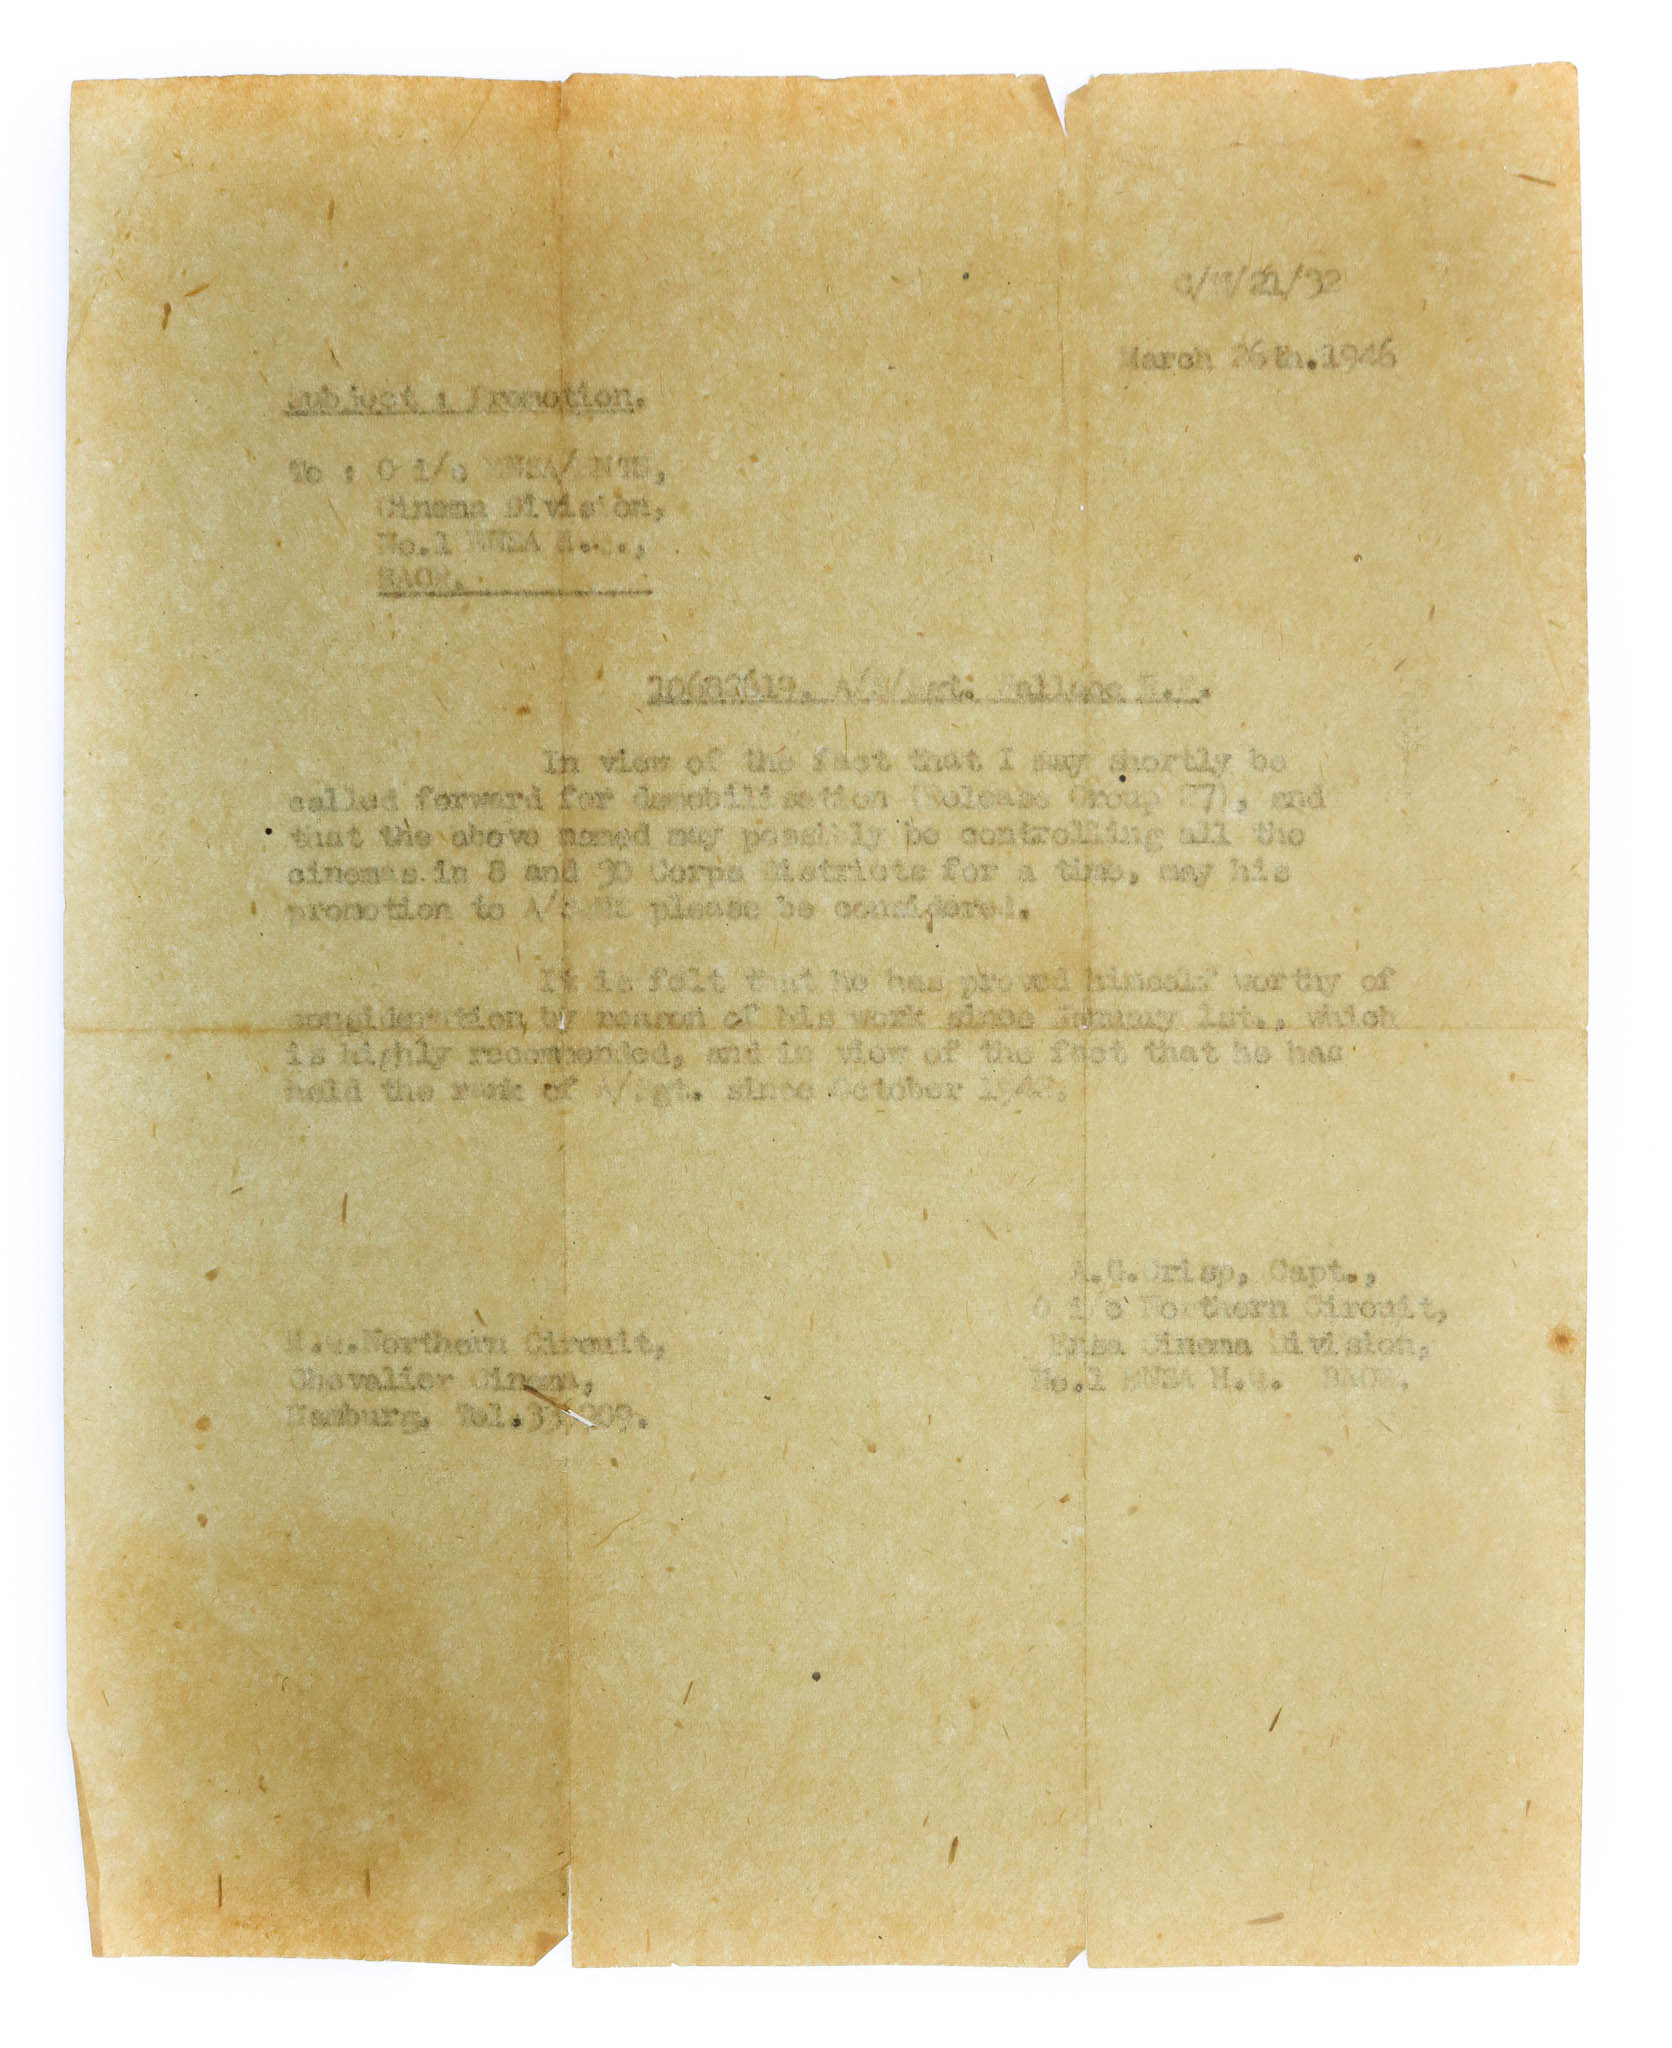 /21/32
March 26th.1946
Subject : Promotion.
To : O i/c ENSA/ENTS,
Cinema Division,
No.1 ENSA H.Q.,
BAOR.
A/S/Sgt.
In view of the fact that I may shortly be
called forward for demobilisation (Release Group 27), and
that the above named may possibly be controlling all the
cinemas in 8 and 30 Corps Districts for a time, may his
promotion to please be considered.
It is felt that he has proved himself worthy of
consideration by reason of his work since January 1st., which
is highly recommended, and in view of the fact that he has
held the rank of A/Sgt. since October
A.G.Crisp, Capt.,
O i/c Northern Circuit,
Ensa Cinema Division,
No.1 ENSA H.Q. BAOR.
H.Q.Northern Circuit,
Chevalier Cinema,
Hamburg. Tel.